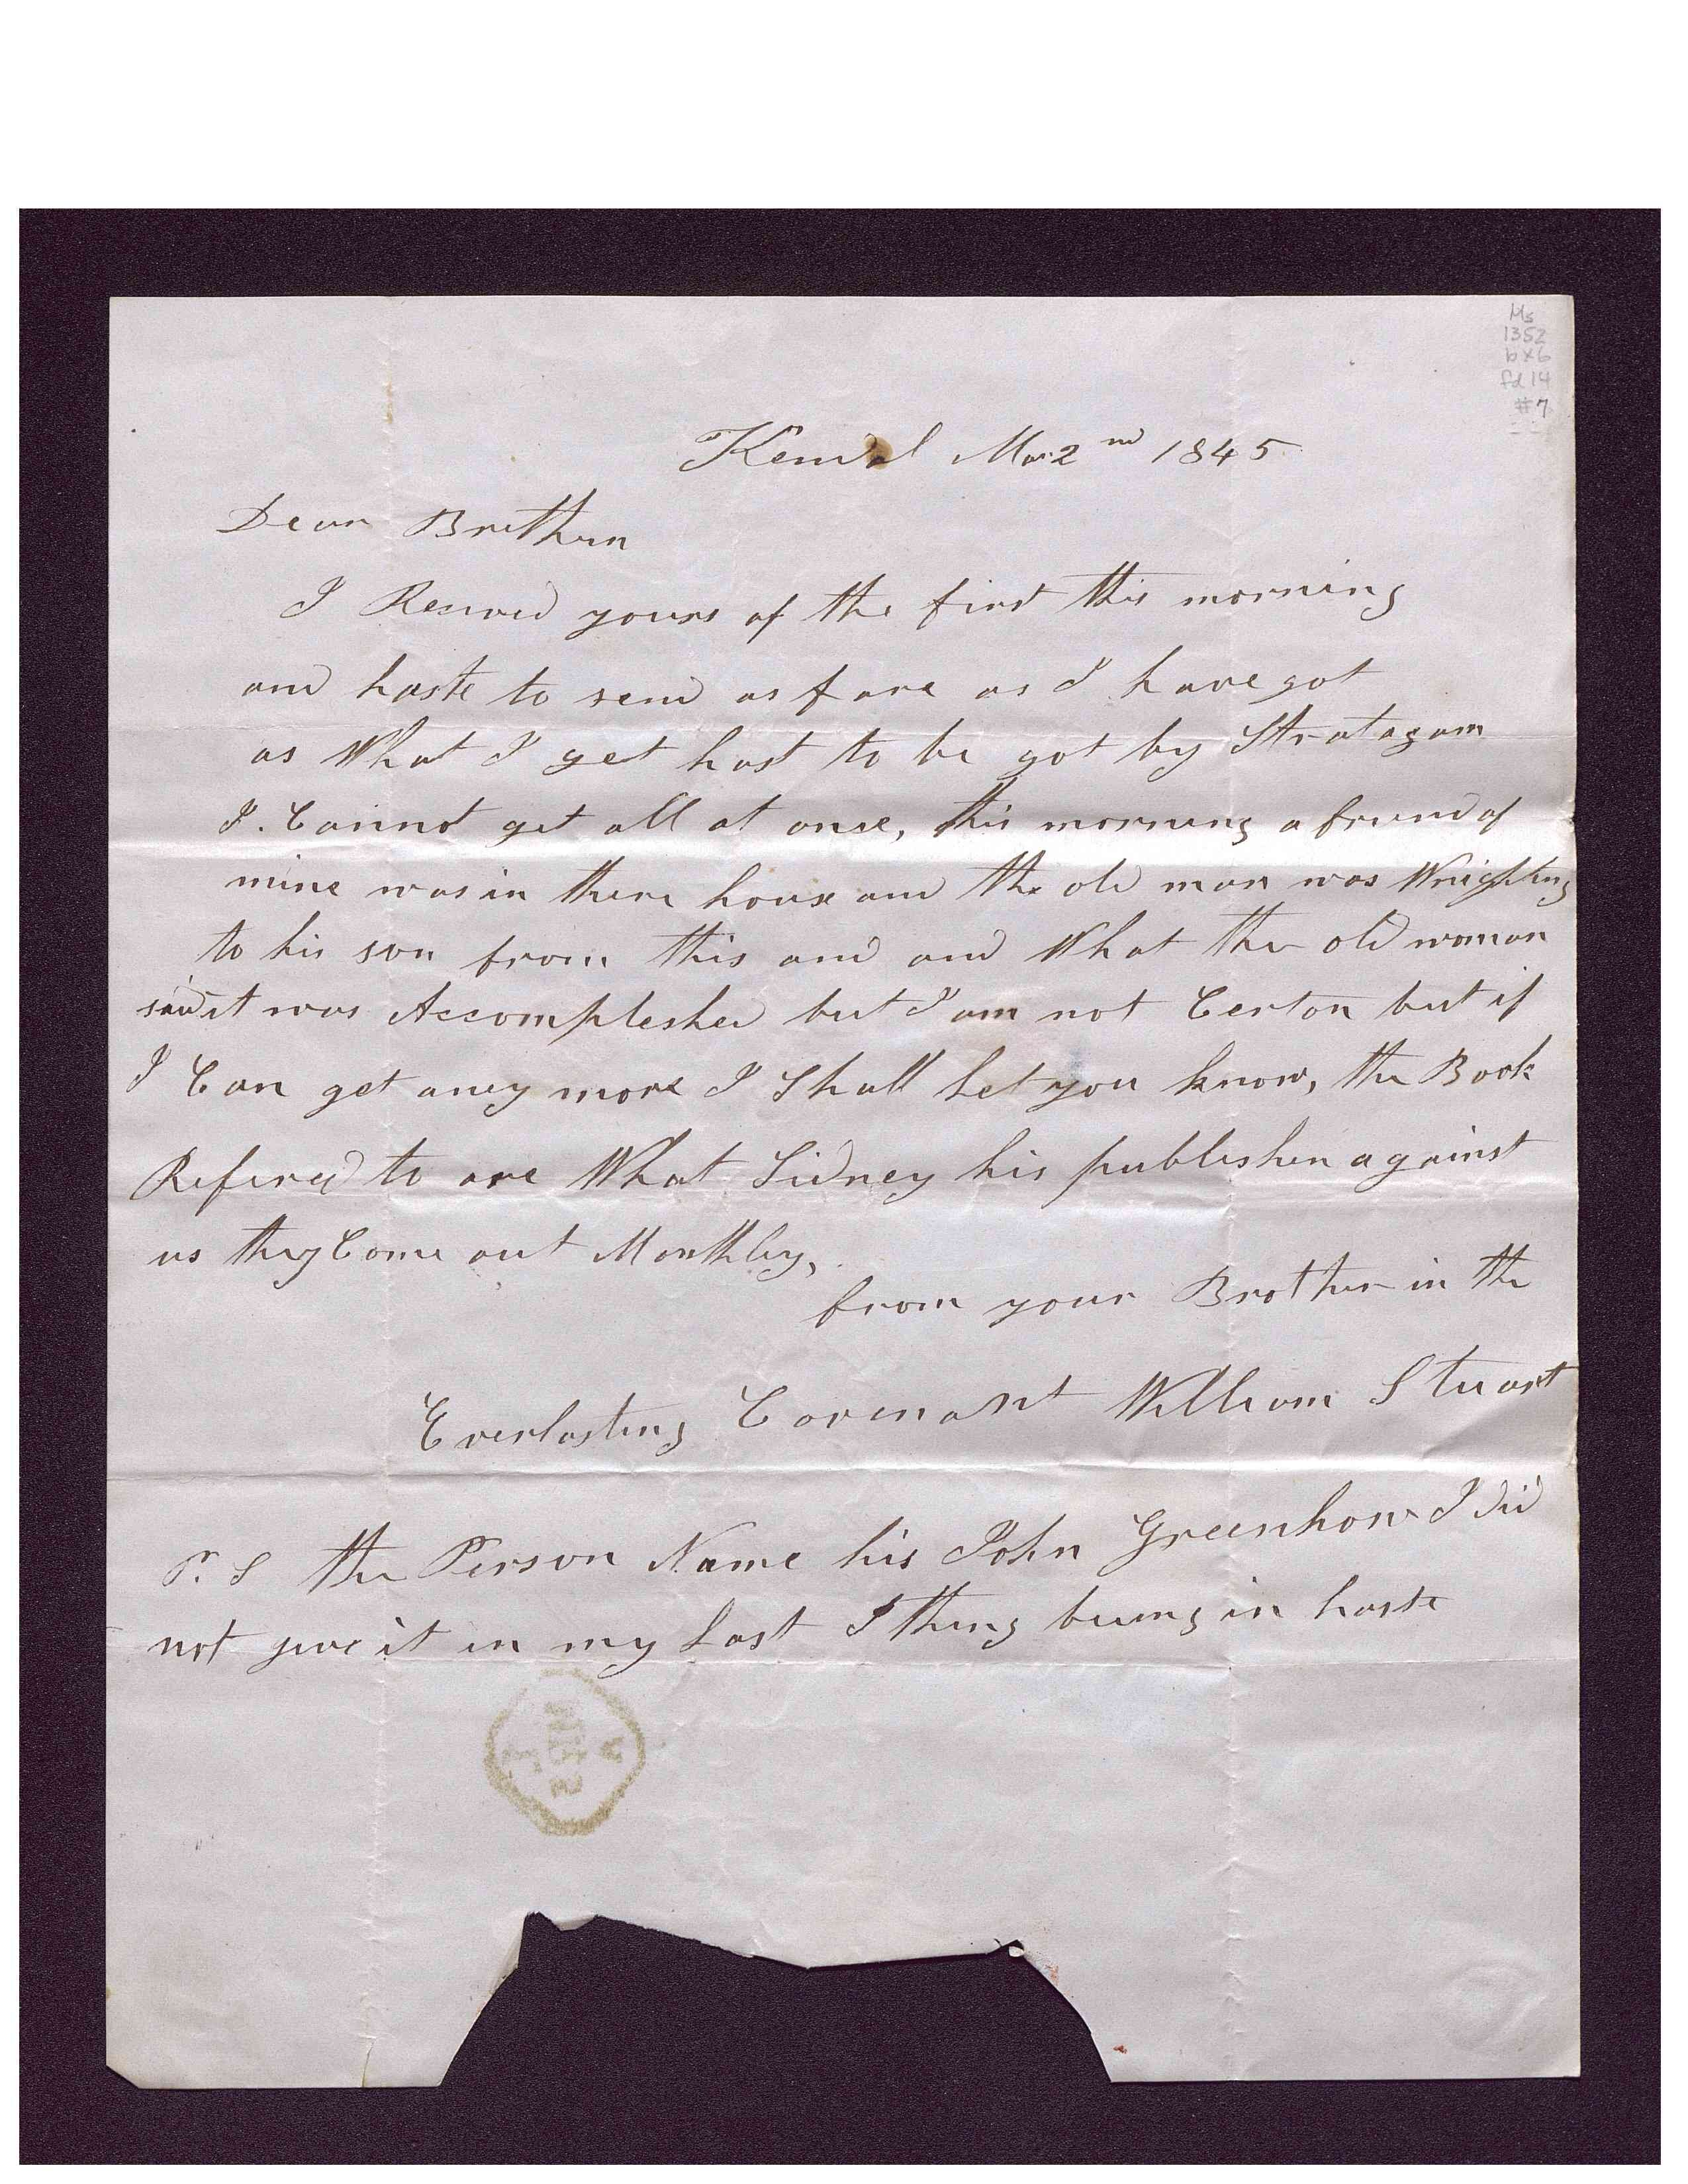 Ms
1352
bx6
fd 14
#7
Kendal Mar 2nd 1845
Dear Brethern
I Receved yours of the first this morning
and haste to send as fare as I have got
as What I get hast to be got by Stratagam
I. Cannot get all at onse, this morning a friend of
mine was in there house and the old man was Wrighting
to his son from this and and What the old woman
said it was Accompleshed but I am not Certon but if
I Can get aney more I Shall Let you know, the Book
Refered to are What Sidney his publishen against
us they Come out Monthley,
from your Brother in the
Everlasting Covenant William Stuart
P. S the Person Name his John Greenhow I did
not give it in my Last I thing being in haste